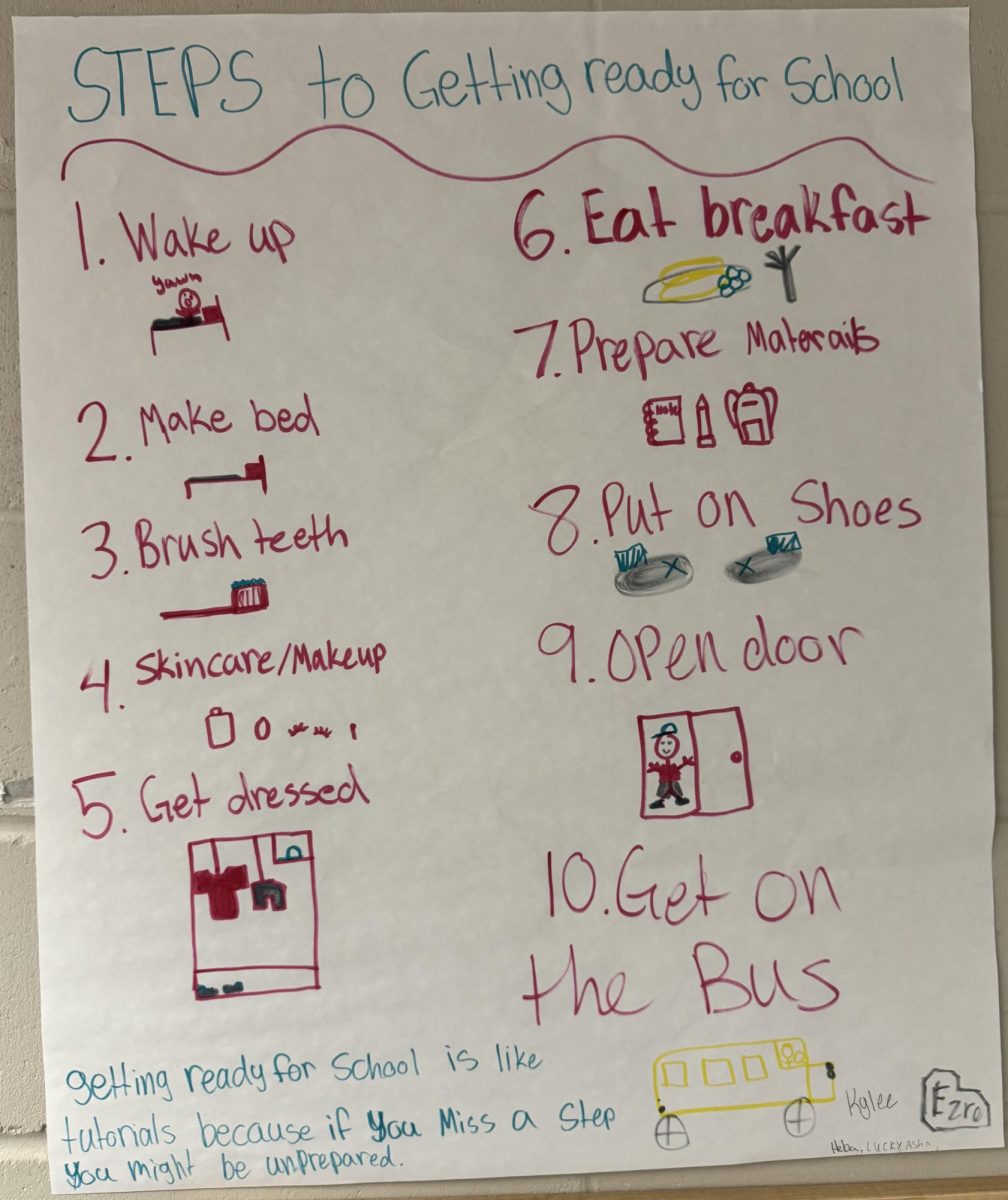 STEPS to Getting ready for School
1. Wake up
yawn
2. Make bed
3. Brush teeth
4. Skincare/Makeup
5. Get dressed
6. Eat breakfast
7. Prepare Materails
8. Put on Shoes
9. Open door
10. Get on
the Bus
getting ready for School is like
tutorials because if you Miss a Step
you might be unprepared.
Kylee
Ezra
Heba, LUCKY, Asha,